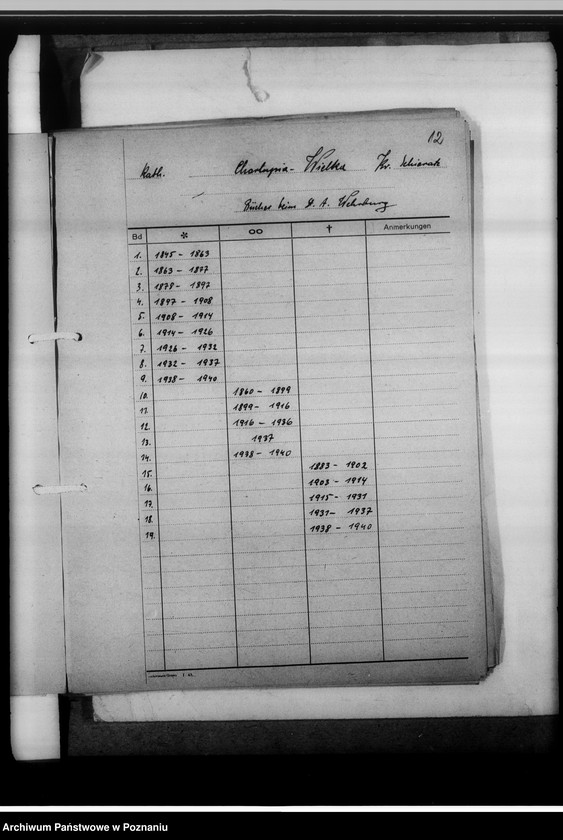 12
Kath. Charłupia-Wielka Kr. Schieratz
Bücher beim D. A. Wehrburg
Bd * ∞ † Anmerkungen
1. 1845 - 1863
2. 1863 - 1877
3. 1878 - 1897
4. 1897 - 1908
5. 1908 - 1914
6. 1914 - 1926
7. 1926 - 1932
8. 1932 - 1937
9. 1938 - 1940
10. 1860 - 1899
11. 1899 - 1916
12. 1916 - 1936
13. 1937
14. 1938 - 1940
15. 1883 - 1902
16. 1903 - 1914
17. 1915 - 1931
18. 1931 - 1937
19. 1938 - 1940
Archiwum Państwowe w Poznaniu